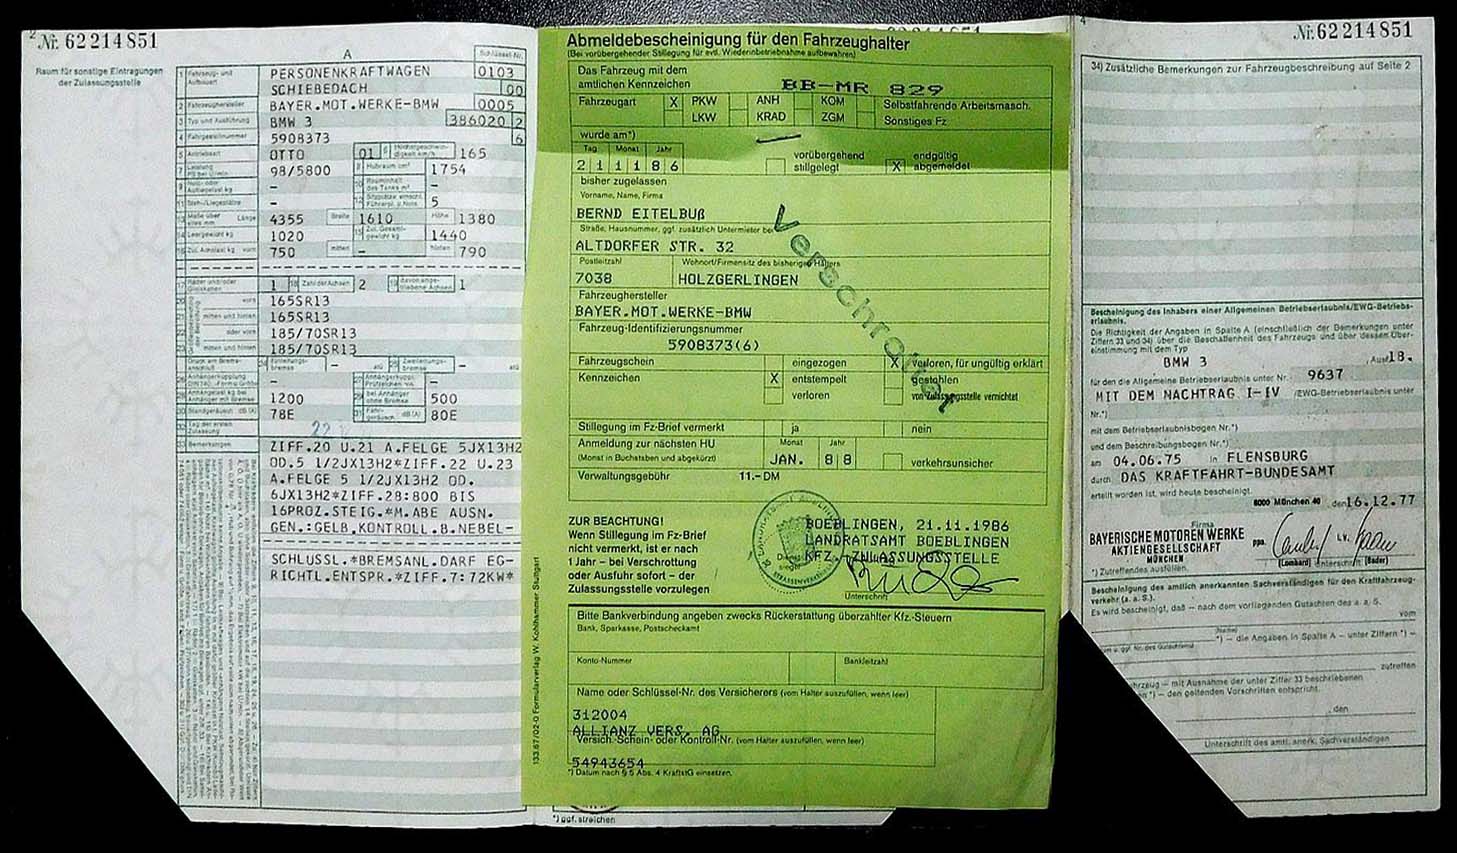 2 Nr. 62214851
Raum für sonstige Eintragungen
der Zulassungsstelle
A
Schlüssel-Nr.
1 Fahrzeug- und Aufbauart PERSONENKRAFTWAGEN 0103
SCHIEBEDACH 00
2 Fahrzeughersteller BAYER.MOT.WERKE-BMW 0005
3 Typ und Ausführung BMW 3 386020 2
4 Fahrgestellnummer 5908373 6
5 Antriebsart OTTO 01 6 Höchstgeschwindigkeit km/h 165
7 98/5800 8 Hubraum cm³ 1754
- -
- 5
Maße über alles mm Länge 4355 Breite 1610 Höhe 1380
Leergewicht kg 1020 Zul. Gesamtgewicht kg 1440
Zul. Achslast kg vorn 750 mitten - hinten 790
1 Zahl der Achsen 2 1
vorn 165SR13
mitten und hinten 165SR13
oder vorn 185/70SR13
mitten und hinten 185/70SR13
- -
- -
1200 500
Standgeräusch dB (A) 78E Fahrgeräusch dB (A) 80E
Tag der ersten Zulassung
33 Bemerkungen ZIFF.20 U.21 A.FELGE 5JX13H2
OD.5 1/2JX13H2*ZIFF.22 U.23
A.FELGE 5 1/2JX13H2 OD.
6JX13H2*ZIFF.28:800 BIS
16PROZ.STEIG.*M.ABE AUSN.
GEN.:GELB.KONTROLL.B.NEBEL-
SCHLUSSL.*BREMSANL.DARF EG-
RICHTL.ENTSPR.*ZIFF.7:72KW*
Abmeldebescheinigung für den Fahrzeughalter
(Bei vorübergehender Stillegung für evtl. Wiederinbetriebnahme aufbewahren)
Das Fahrzeug mit dem
amtlichen Kennzeichen BB-MR 829
Fahrzeugart X PKW ANH KOM Selbstfahrende Arbeitsmasch.
LKW KRAD ZGM Sonstiges Fz
wurde am*)
Tag Monat Jahr
2 1 1 1 8 6 vorübergehend stillgelegt X endgültig abgemeldet
bisher zugelassen
Vorname, Name, Firma
BERND EITELBUß
Straße, Hausnummer, ggf. zusätzlich Untermieter bei
ALTDORFER STR. 32
Postleitzahl Wohnort/Firmensitz des bisherigen Halters
7038 HOLZGERLINGEN
Verschrottet
Fahrzeughersteller
BAYER.MOT.WERKE-BMW
Fahrzeug-Identifizierungsnummer
5908373(6)
Fahrzeugschein eingezogen X verloren, für ungültig erklärt
Kennzeichen X entstempelt gestohlen
verloren von Zulassungsstelle vernichtet
Stillegung im Fz-Brief vermerkt ja nein
Anmeldung zur nächsten HU Monat Jahr
(Monat in Buchstaben und abgekürzt) JAN. 8 8 verkehrsunsicher
Verwaltungsgebühr 11.- DM
ZUR BEACHTUNG!
Wenn Stillegung im Fz-Brief
nicht vermerkt, ist er nach
1 Jahr – bei Verschrottung
oder Ausfuhr sofort – der
Zulassungsstelle vorzulegen
BOEBLINGEN, 21.11.1986
LANDRATSAMT BOEBLINGEN
KFZ.-ZULASSUNGSSTELLE
Unterschrift
Bitte Bankverbindung angeben zwecks Rückerstattung überzahlter Kfz.-Steuern
Bank, Sparkasse, Postscheckamt
Konto-Nummer Bankleitzahl
Name oder Schlüssel-Nr. des Versicherers (vom Halter auszufüllen, wenn leer)
312004
ALLIANZ VERS. AG
Versich.-Schein- oder Kontroll-Nr. (vom Halter auszufüllen, wenn leer)
54943654
*) Datum nach § 5 Abs. 4 KraftStG einsetzen.
133.67/02-0 Formularverlag W. Kohlhammer Stuttgart
*) ggf. streichen
4 Nr. 62214851
34) Zusätzliche Bemerkungen zur Fahrzeugbeschreibung auf Seite 2
Bescheinigung des Inhabers einer Allgemeinen Betriebserlaubnis/EWG-Betriebs-
erlaubnis.
Die Richtigkeit der Angaben in Spalte A (einschließlich der Bemerkungen unter
Ziffern 33 und 34) über die Beschaffenheit des Fahrzeugs und über dessen Über-
einstimmung mit dem Typ
BMW 3 , Ausf 18.
für den die Allgemeine Betriebserlaubnis unter Nr. 9637
MIT DEM NACHTRAG I-IV /EWG-Betriebserlaubnis unter
Nr.*)
mit dem Betriebserlaubnisbogen Nr.*)
und dem Beschreibungsbogen Nr.*)
am 04.06.75 in FLENSBURG
durch DAS KRAFTFAHRT-BUNDESAMT
erteilt worden ist, wird heute bescheinigt.
8000 München 40 , den 16.12.77
Firma
BAYERISCHE MOTOREN WERKE
AKTIENGESELLSCHAFT
MÜNCHEN
ppa. i.V.
(Lombard) Unterschrift (Bader)
*) Zutreffendes ausfüllen.
Bescheinigung des amtlich anerkannten Sachverständigen für die Kraftfahrzeug-
verkehr (a. a. S.).
Es wird bescheinigt, daß – nach dem vorliegenden Gutachten des a. a. S.
vom
(Name)
*) – die Angaben in Spalte A – unter Ziffern *) –
zutreffen
rzeug – mit Ausnahme der unter Ziffer 33 beschriebenen
*) – den geltenden Vorschriften entspricht.
, den
Unterschrift des amtl. anerk. Sachverständigen